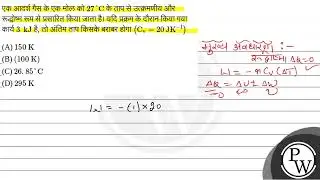 एक आदर्श गैस के एक मोल को 27°C के ताप से उत्क्रमणीय और
रूद्धोष्म रूप से प्रसारित किया जाता है। यदि प्रक्रम के दौरान किया गया
कार्य 3 kJ है, तो अंतिम ताप किसके बराबर होगा (Cᵥ = 20 JK⁻¹)
(A) 150 K
(B) (100 K)
(C) 26. 85°C
(D) 295 K
मुख्य अवधारणा :-
ΔQ=0
W = -nCᵥ(ΔT)
ΔQ = ΔU + ΔW
W = -(1)×20
PW